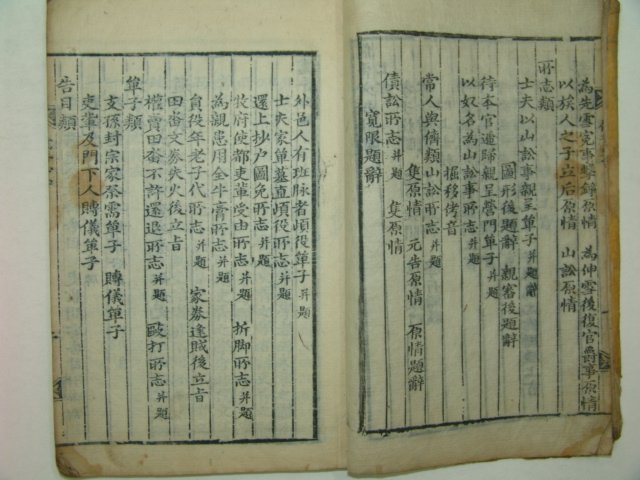 為先雪寃事擊錚原情 為伸雪後復官爵事原情
以族人之子立后原情 山訟原情
所志類
士夫以山訟事親呈單子并題辭
圖形後題辭 親審後題辭
待本官遞歸親呈營門單子并題
以奴名為山訟所志并題
掘移侤音
常人與儕類山訟所志并題
隻原情 元告原情 原情題辭
債訟所志并題 隻原情
寬限題辭
外邑人有班脉者頉役單子并題
士夫家單墓直頉役所志并題
還上抄戶圖免所志并題
牧府使都吏輩受由所志并題 折脚所志并題
為親患用全牛膏所志并題
負役年老子代所志并題 家券逢賊後立旨
田畓文券失火後立旨
權賣田畓不許還退所志并題 毆打所志并題
單子類
支孫封宗家祭需單子 賻儀單子
吏輩及門下人賻儀單子
告目類